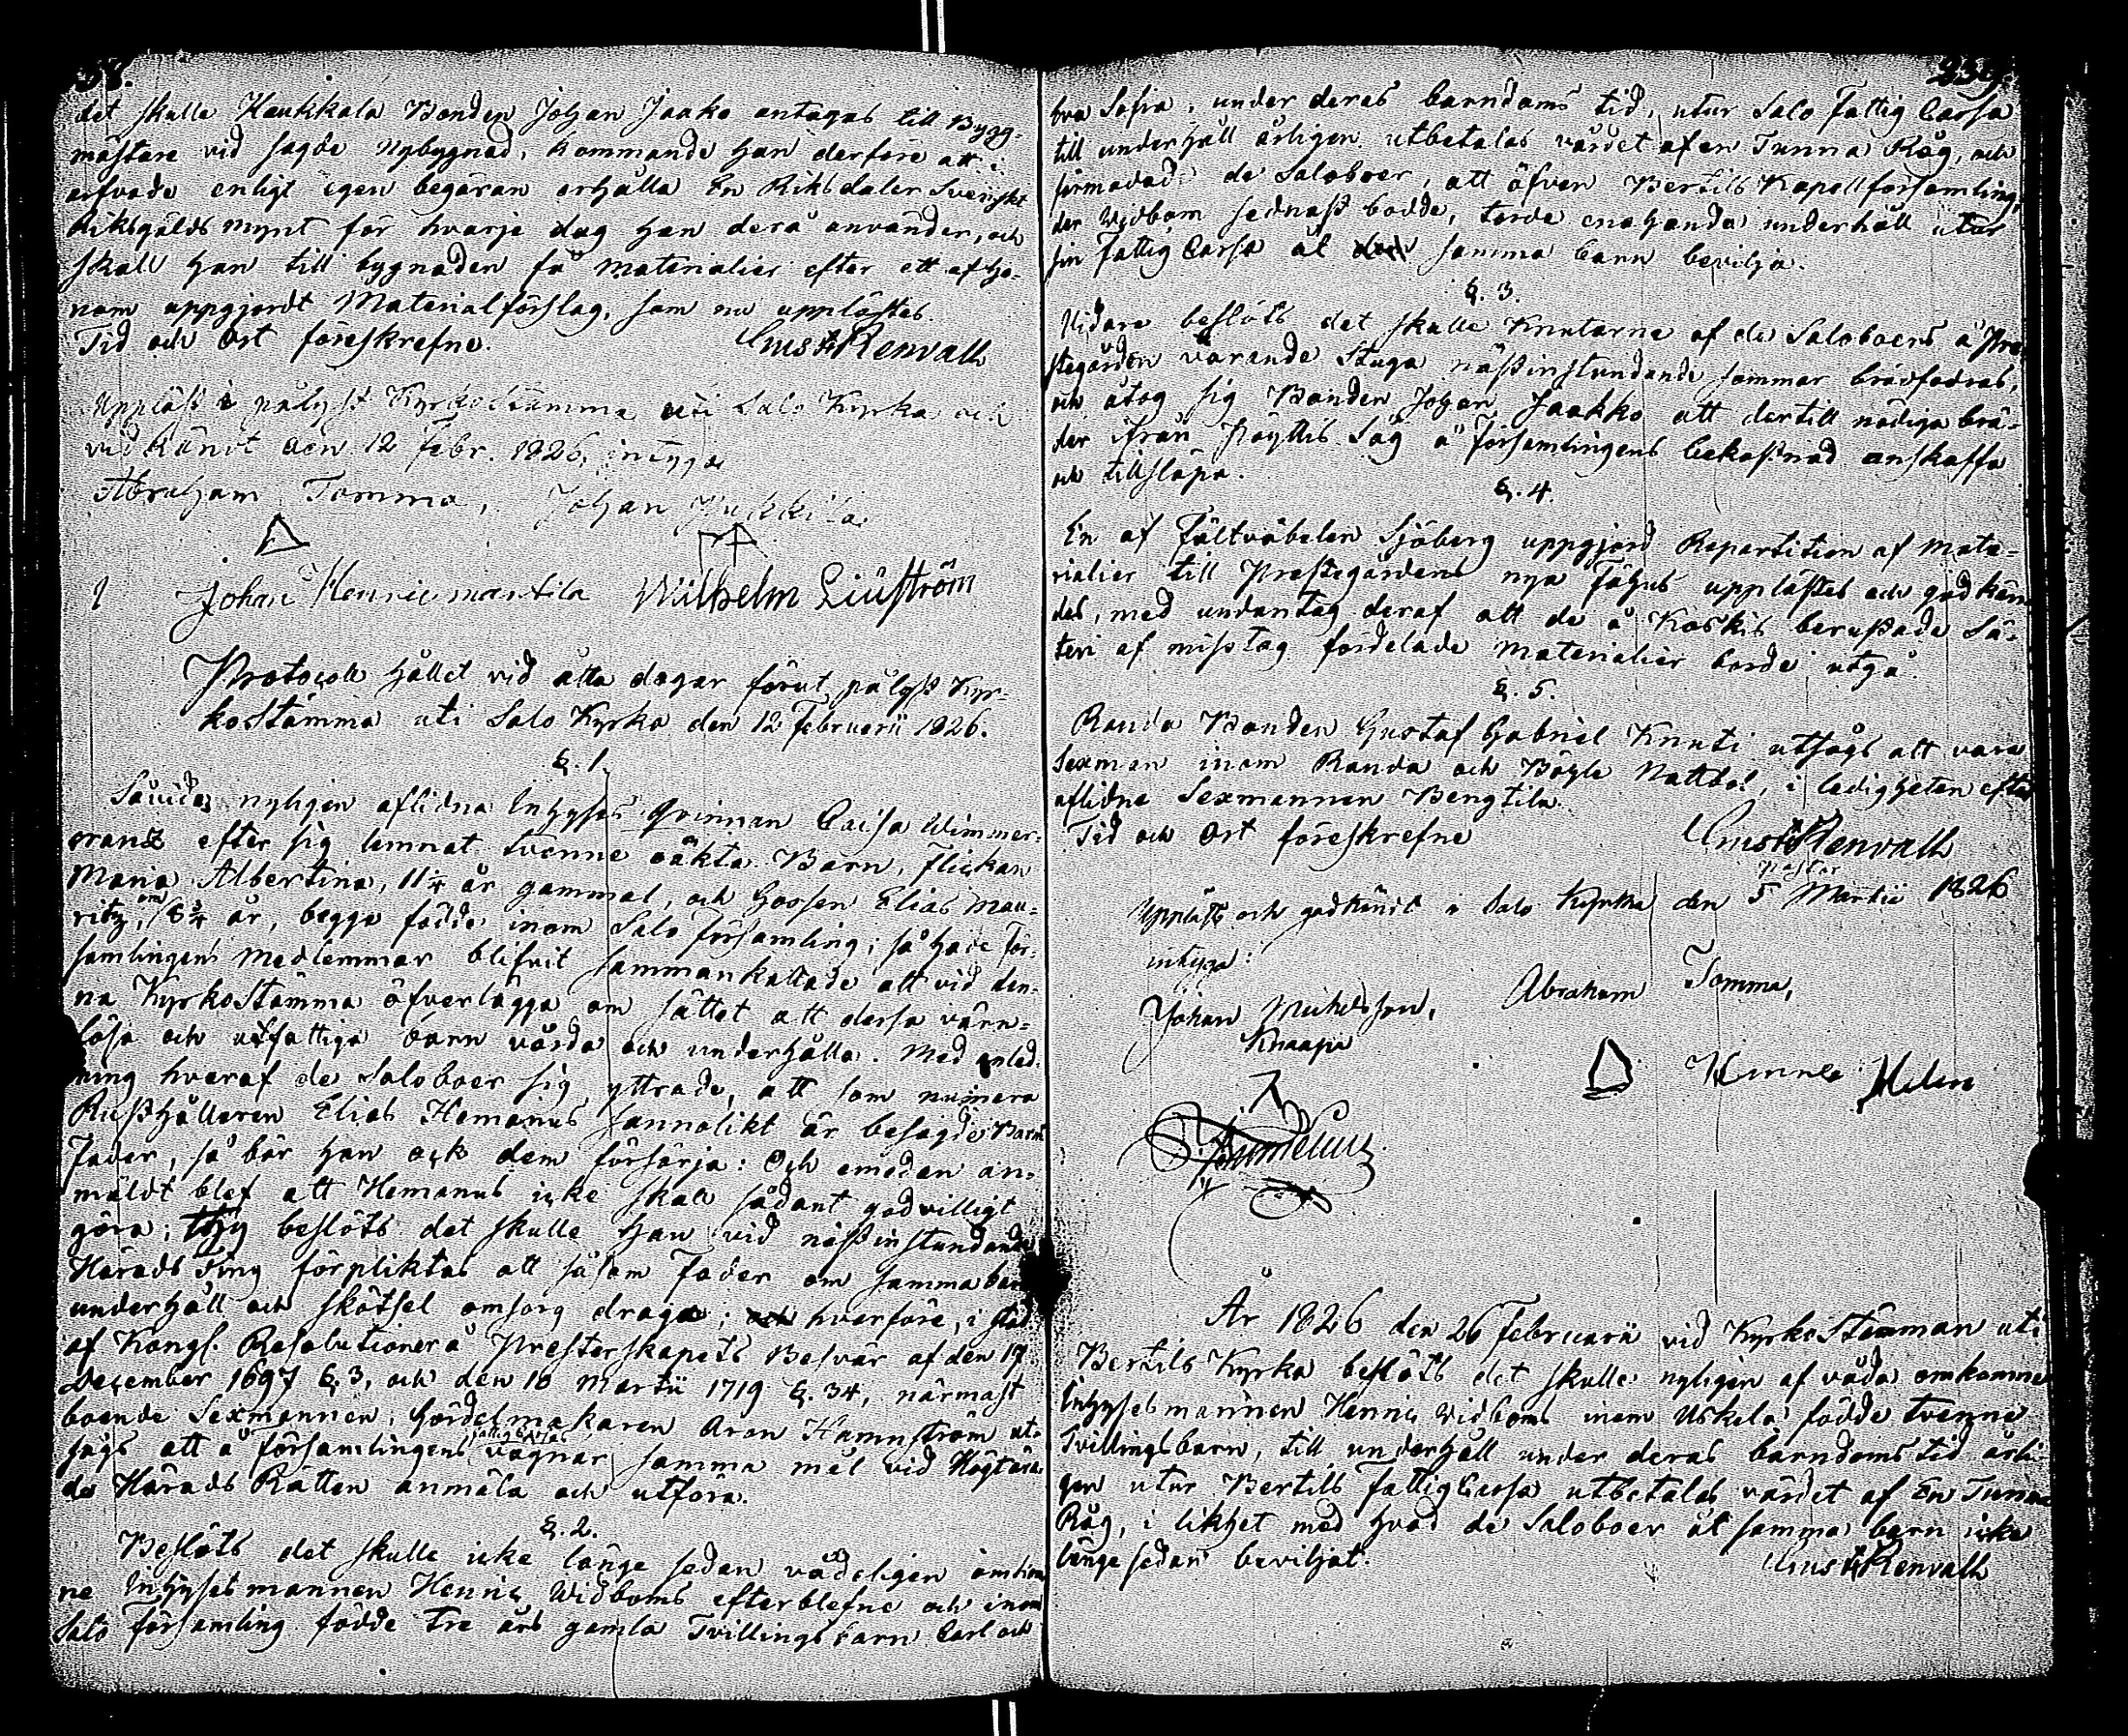 det skulle Haukkala Bonden Johan Jaako antagas till Bygg-
mästare vid sagde nybygnad, kommande han derföre att i
arfvode enligt egen begäran erhålla En Riksdaler Svenskt
Riksgälds mynt för hvarje dag han derå använder, och
skall han till bygnaden få materialier efter ett af ho-
nom uppgjordt Materialförslag, som nu upplästes.
Tid och Ort föreskrefne. Gust. Renvall
Uppläst i pålyst Kyrkostämma uti Salo Kyrka och
vidkändt den 12 Febr. 1826, intyga
Abraham Tomma, Johan Hukkila
Johan Henric Wilhelm Liuström
Protocoll hållet vid åtta dagar förut pålyst Kyr-
kostämma uti Salo Kyrka den 12 Februarii 1826.
§. 1.
Såvida nyligen aflidna Inhyses Qvinnan Caisa Wimmer-
efter sig lemnat tvenne oäkta Barn, flickan
Maria Albertina, 11 1/4 år gammal, och Gossen Elias Mau-
ritz, om 8 3/4 år, begge födde inom Salo församling; så hade för-
samlingens medlemmar blifvit sammankallade att vid den-
na Kyrkostämma öfverlägga om sättet att dessa värn-
lösa och utfattiga barn vårda och underhålla. Med anled-
ning hvaraf de Saloboer sig yttrade, att som numera
Rusthållaren Elias Hemanus sannolikt är besagde Barns
Fader, så bör han ock dem försörja: Och emedan an-
mäldt blef att Hemanus icke skall sådant godvilligt
göra; thy beslöts det skulle han vid nästinstundande
Härads Ting förpliktas att såsom Fader om samma barns
underhåll och skötsel omsorg draga; hvarföre, i stöd
af Kongl. Resolutioner å Presterskapets Besvär af den 17
December 1697 §. 3, och den 18 Martii 1719 §. 34, närmast
boende Sexmannen, Gördelmakaren Aron Hamnström ut-
sågs att å församlingens fattigcassas vägnar samma mål vid Högtära-
de Härads Rätten anmäla och utföra.
§. 2.
Beslöts det skulle icke länge sedan vådeligen omkom-
ne Inhysesmannen Henric Widboms efterblefne och inom
Salo församling födde tre års gamla Tvillingsbarn Carl och
239.
Sofia, under deras barndoms tid, utur Salo Fattig Cassa
till underhåll årligen utbetalas värdet af en Tunna Råg, och
förmodade de Saloboer, att äfven Bertils Kapellförsamling,
der Widbom sednast bodde, torde enahanda underhåll utur
sin Fattig Cassa åt samma barn bevilja.
§. 3.
Vidare beslöts det skulle knutarne af de Saloboers å Pre-
stegården varande Stuga nästinstundande sommar brädfodras,
och åtog sig Bonden Johan Jaakko att dertill nödiga brä-
der ifrån Pöyttis Såg å församlingens bekostnad anskaffa
och tillsläpa.
§. 4.
En af Fältväbelen Sjöberg uppgjord Repartition af mate-
rialier till Prestegårdens nya Fähus upplästes och godkän-
des, med undantag deraf att de å Koskis berustade Sä-
teri af misstag fördelade materialier borde utgå.
§. 5.
Randa Bonden Gustaf Gabriel Knuti utsågs att vara
Sexman inom Randa och Böyle Nattbol, i ledigheten efter
aflidne Sexmannen Bengtila.
Tid och Ort föreskrefne Gust. Renvall
Pastor
Uppläst och godkändt i Salo Kyrka den 5 Martii 1826
intyga:
Johan Michelsson, Abraham Tomma,
Knaapi
År 1826 den 26 Februarii vid Kyrkostämman uti
Bertils Kyrka beslöts det skulle nyligen af våda omkomne
Inhysesmannen Henric Widboms inom Uskela födde tvenne
Tvillingsbarn, till underhåll under deras barndoms tid årli-
gen utur Bertils Fattig Cassa utbetalas värdet af En Tunna
Råg, i likhet med hvad de Saloboer åt samma barn icke
länge sedan beviljat. Gust. Renvall